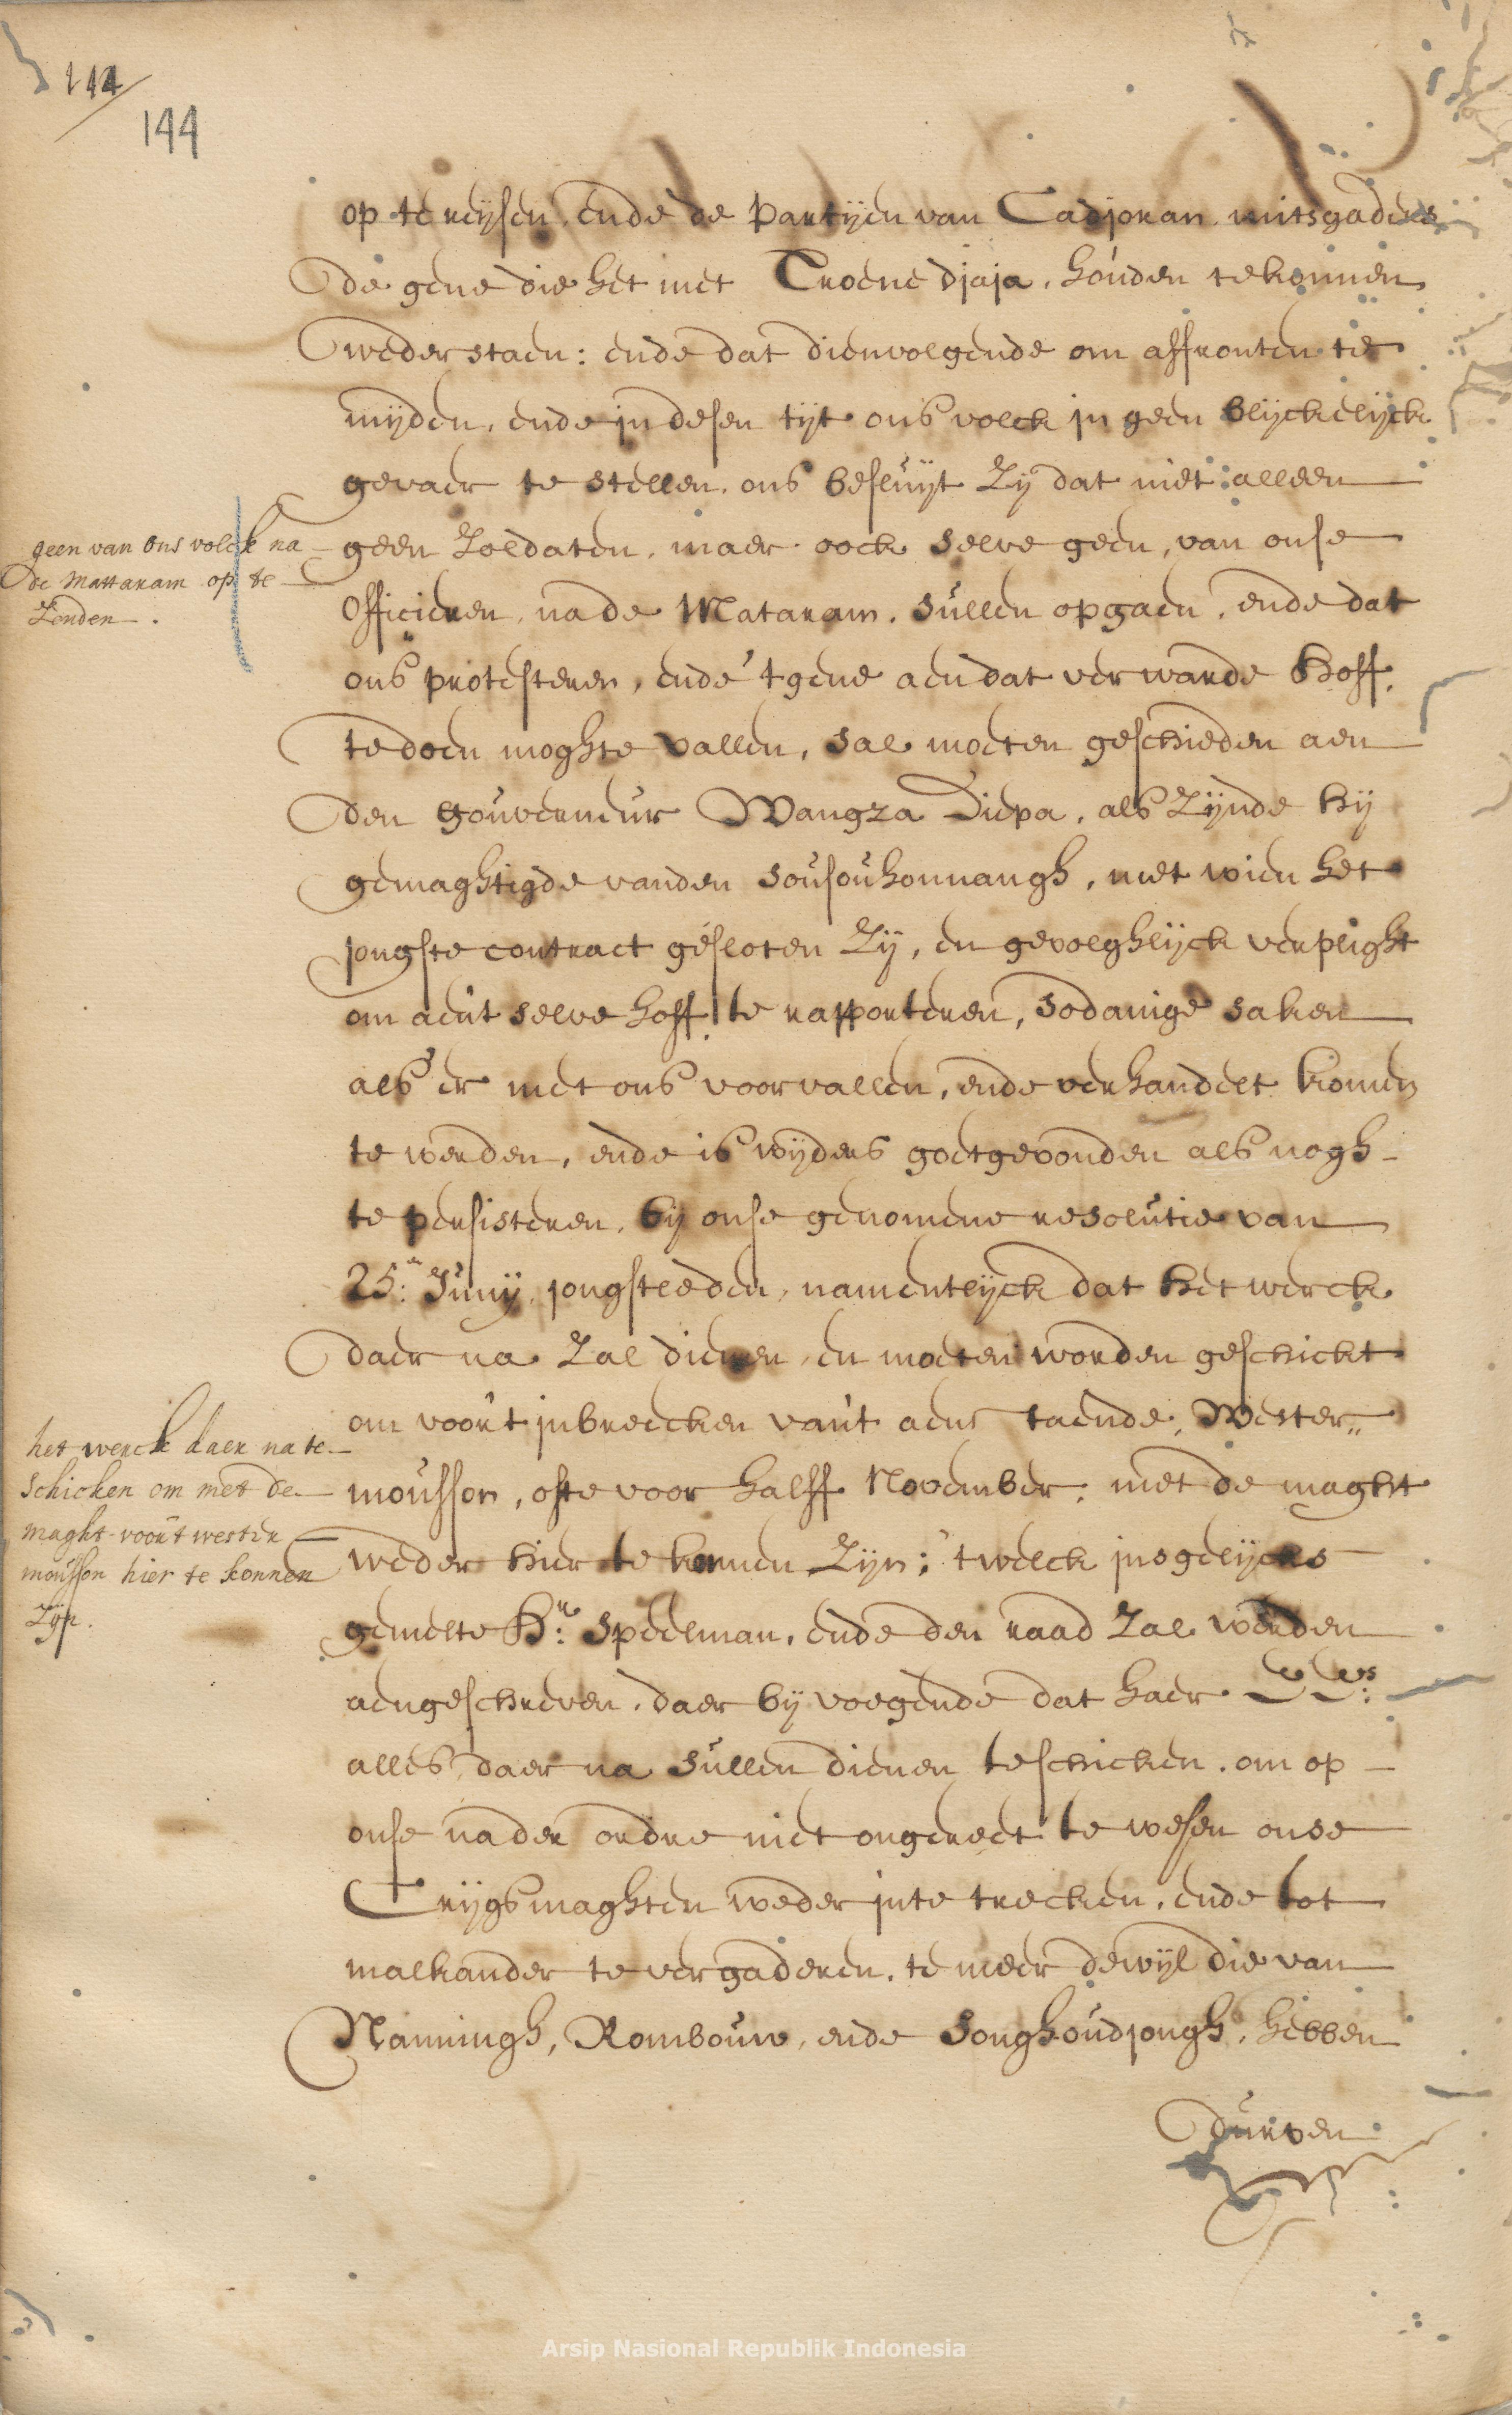 144
144
op te reijsen, ende de Partijen van Cadjoran, mitsgaders
de gene die het met Troene djaja, houden te konnen
wederstaen: ende dat dienvolgende om affronten te
mijden, ende in desen tijt ons volck in geen blijckelijck
gevaer te stellen, ons besluijt Zij dat niet alleen
geen Zoldaten, maer oock selve geen, van onse
Officieren, na de Mataram, sullen opgaen, ende dat
ons protesteren, ende 't gene aen dat verwarde hoff,
te doen moghte vallen, sal moeten geschieden aen
den gouverneur Wangza Diepa, als Zijnde hij
gemaghtigde vanden sousouhounangh, met wien het
jongste contract gesloten Zij, en gevolghlijck verplight
om aen't selve hoff te rapporteren, sodanige saken
als er met ons voorvallen, ende verhandelt komen
te werden, ende is wijders goetgevonden als nogh
te persisteren, bij onse genomene resolutie van
25:en Junij, jongstleden, namentlijck dat het werck
daer na Zal dienen, en moeten worden geschickt
om voor't inbreecken van't aenstaende, Wester„
mousson, ofte voor halff November, met de maght
weder hier te konnen Zijn; 't welck insgelijcks
gemelte Hr: Speelman, ende den raad Zal werden
aengeschreven, daer bij voegende dat haer EEs:
alles daer na sullen dienen te schicken, om op
onse nader ordre niet ongereet te wesen onse
Crijgsmaghten weder in te trecken, ende tot
malkander te vergaderen, te meer dewijl die van
Nanningh, Rombouw, ende Songhoudjongh, hebben
durven
geen van ons volck na
de Mattaram op te
Zenden.
het werck daer na te
schicken om met de
maght voor't wester
mousson hier te konnen
Zijn.
Arsip Nasional Republik Indonesia